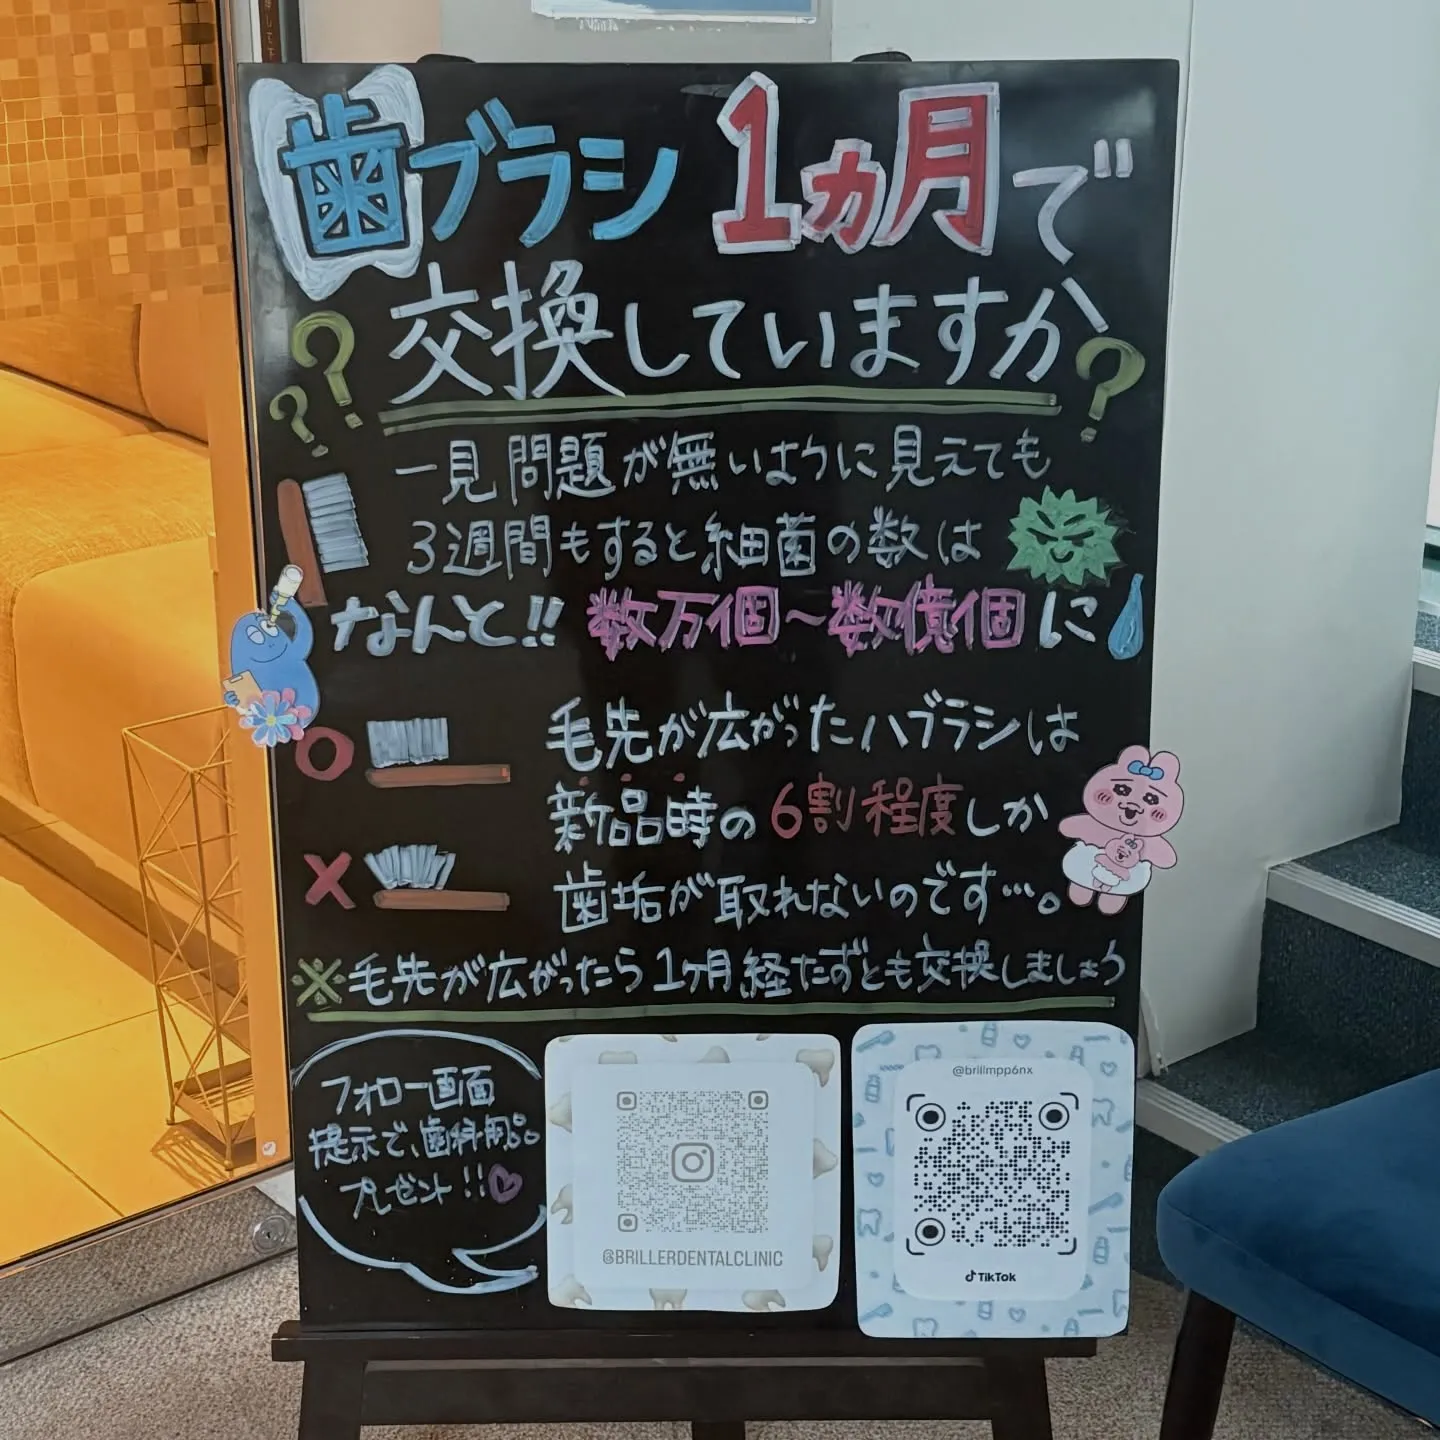 歯ブラシ 1ヵ月で
交換していますか
???
一見問題が無いように見えても
3週間もすると細菌の数は
なんと!! 数万個〜数億個に
毛先が広がったハブラシは
新品時の6割程度しか
歯垢が取れないのです…。
※毛先が広がったら1ヶ月経たずとも交換しましょう
フォロー画面
提示で、歯科用品
プレゼント!!
@BRILLERDENTALCLINIC
@brillmpp6nx
TikTok